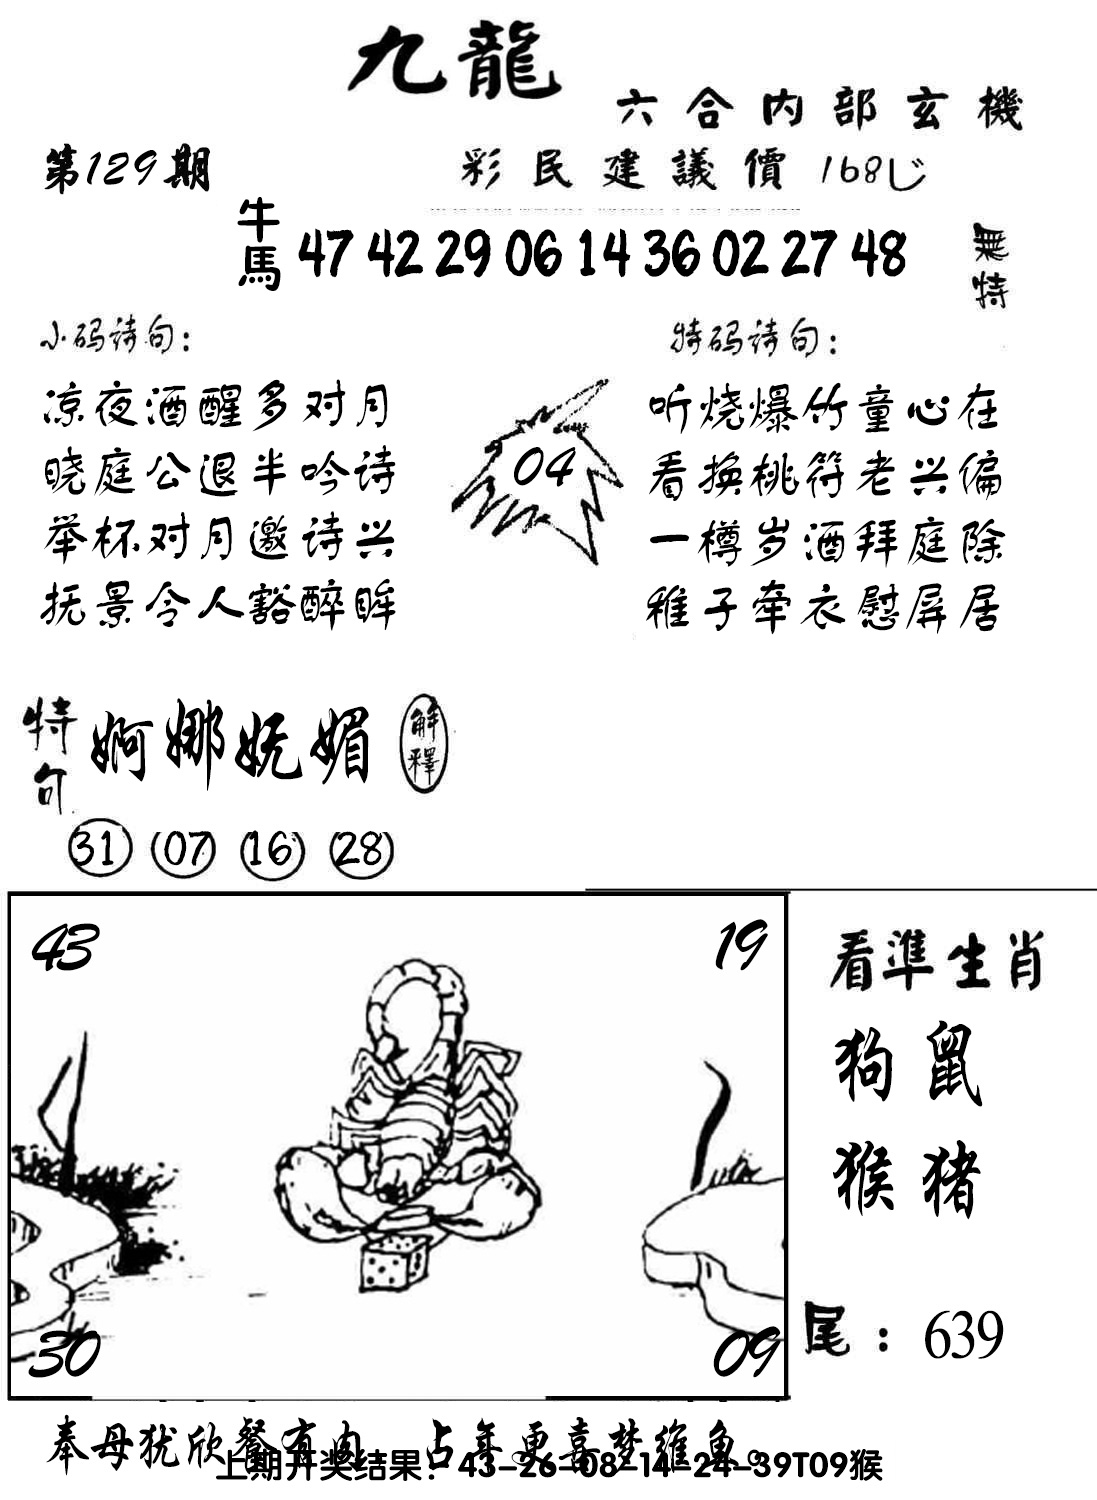 九龍
六合内部玄機
第129期
彩民建議價 168
牛馬 47 42 29 06 14 36 02 27 48 無特
小码诗句：
凉夜酒醒多对月
晓庭公退半吟诗
举杯对月邀诗兴
抚景令人豁醉眸
04
特码诗句：
听烧爆竹童心在
看换桃符老兴偏
一樽岁酒拜庭除
稚子牵衣慰屏居
特句 婀娜妩媚 解釋
31 07 16 28
43 19
30 09
看準生肖
狗鼠
猴猪
尾：639
奉母犹欣餐有肉 占年更喜梦维鱼。
上期开奖结果：43-26-08-14-24-39T09猴